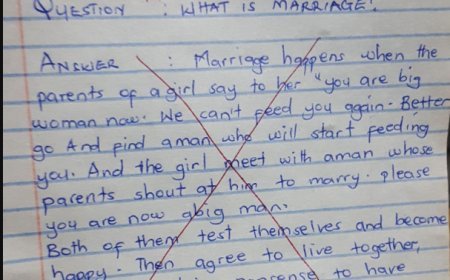 QUESTION : WHAT IS MARRIAGE?
ANSWER : Marriage happens when the
parents of a girl say to her "you are big
woman now. We can't feed you again. Better
go And find aman who will start feeding
you. And the girl meet with aman whose
parents shout at him to marry. please
you are now abig man.
Both of them test themselves and become
happy. Then agree to live together,
to have